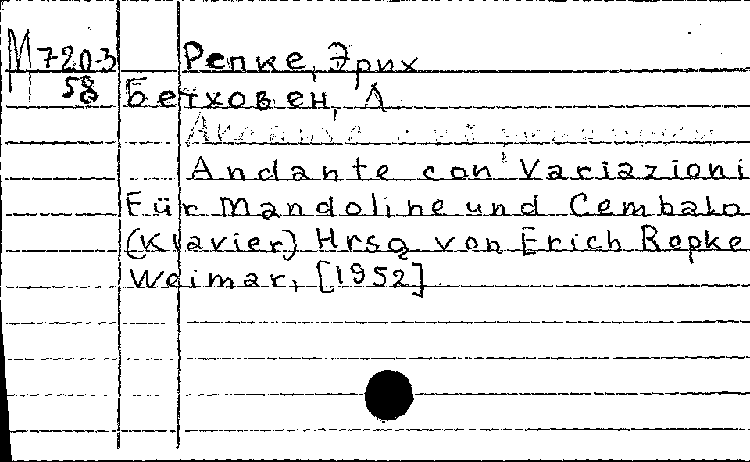 М 720-3 Репке, Эрих
58 Бетховен, Л
Andante con Variazioni
Für Mandoline und Cembalo
(Klavier) Hrsg von Erich Repke
Weimar, [1952]